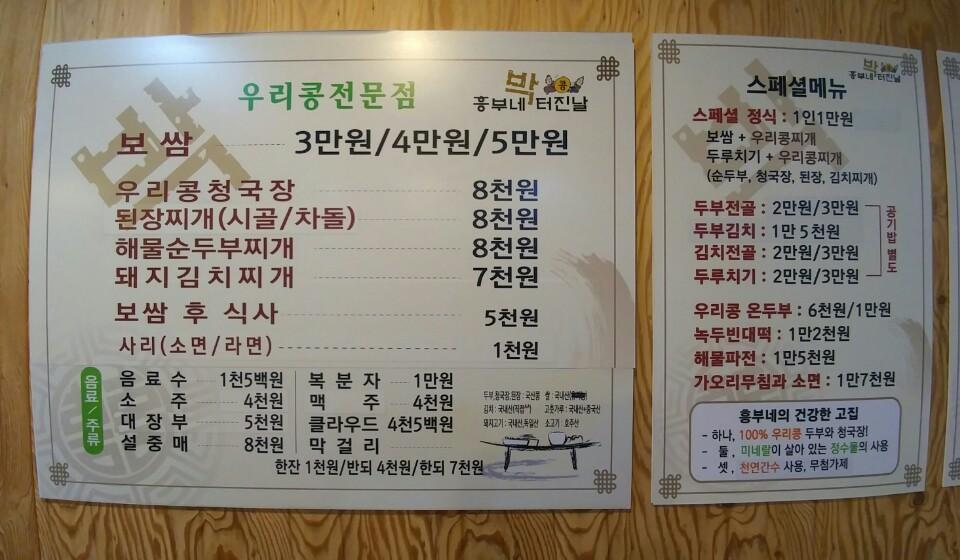 우리콩전문점
박 콩
흥부네 터진날
보쌈 3만원/4만원/5만원
우리콩청국장 8천원
된장찌개(시골/차돌) 8천원
해물순두부찌개 8천원
돼지김치찌개 7천원
보쌈 후 식사 5천원
사리(소면/라면) 1천원
음료/주류
음료수 1천5백원
소주 4천원
대장부 5천원
설중매 8천원
복분자 1만원
맥주 4천원
클라우드 4천5백원
막걸리
한잔 1천원/반되 4천원/한되 7천원
두부,청국장,된장 : 국산콩 쌀 : 국내산
김치 : 국내산 고춧가루 : 국내산+중국산
돼지고기 : 국내산,독일산 소고기 : 호주산
박 콩
흥부네 터진날
스페셜메뉴
스페셜 정식 : 1인1만원
보쌈 + 우리콩찌개
두루치기 + 우리콩찌개
(순두부, 청국장, 된장, 김치찌개)
두부전골 : 2만원/3만원
두부김치 : 1만5천원
김치전골 : 2만원/3만원
두루치기 : 2만원/3만원
공기밥 별도
우리콩 온두부 : 6천원/1만원
녹두빈대떡 : 1만2천원
해물파전 : 1만5천원
가오리무침과 소면 : 1만7천원
흥부네의 건강한 고집
- 하나, 100% 우리콩 두부와 청국장!
- 둘, 미네랄이 살아 있는 정수물의 사용
- 셋, 천연간수 사용, 무첨가제